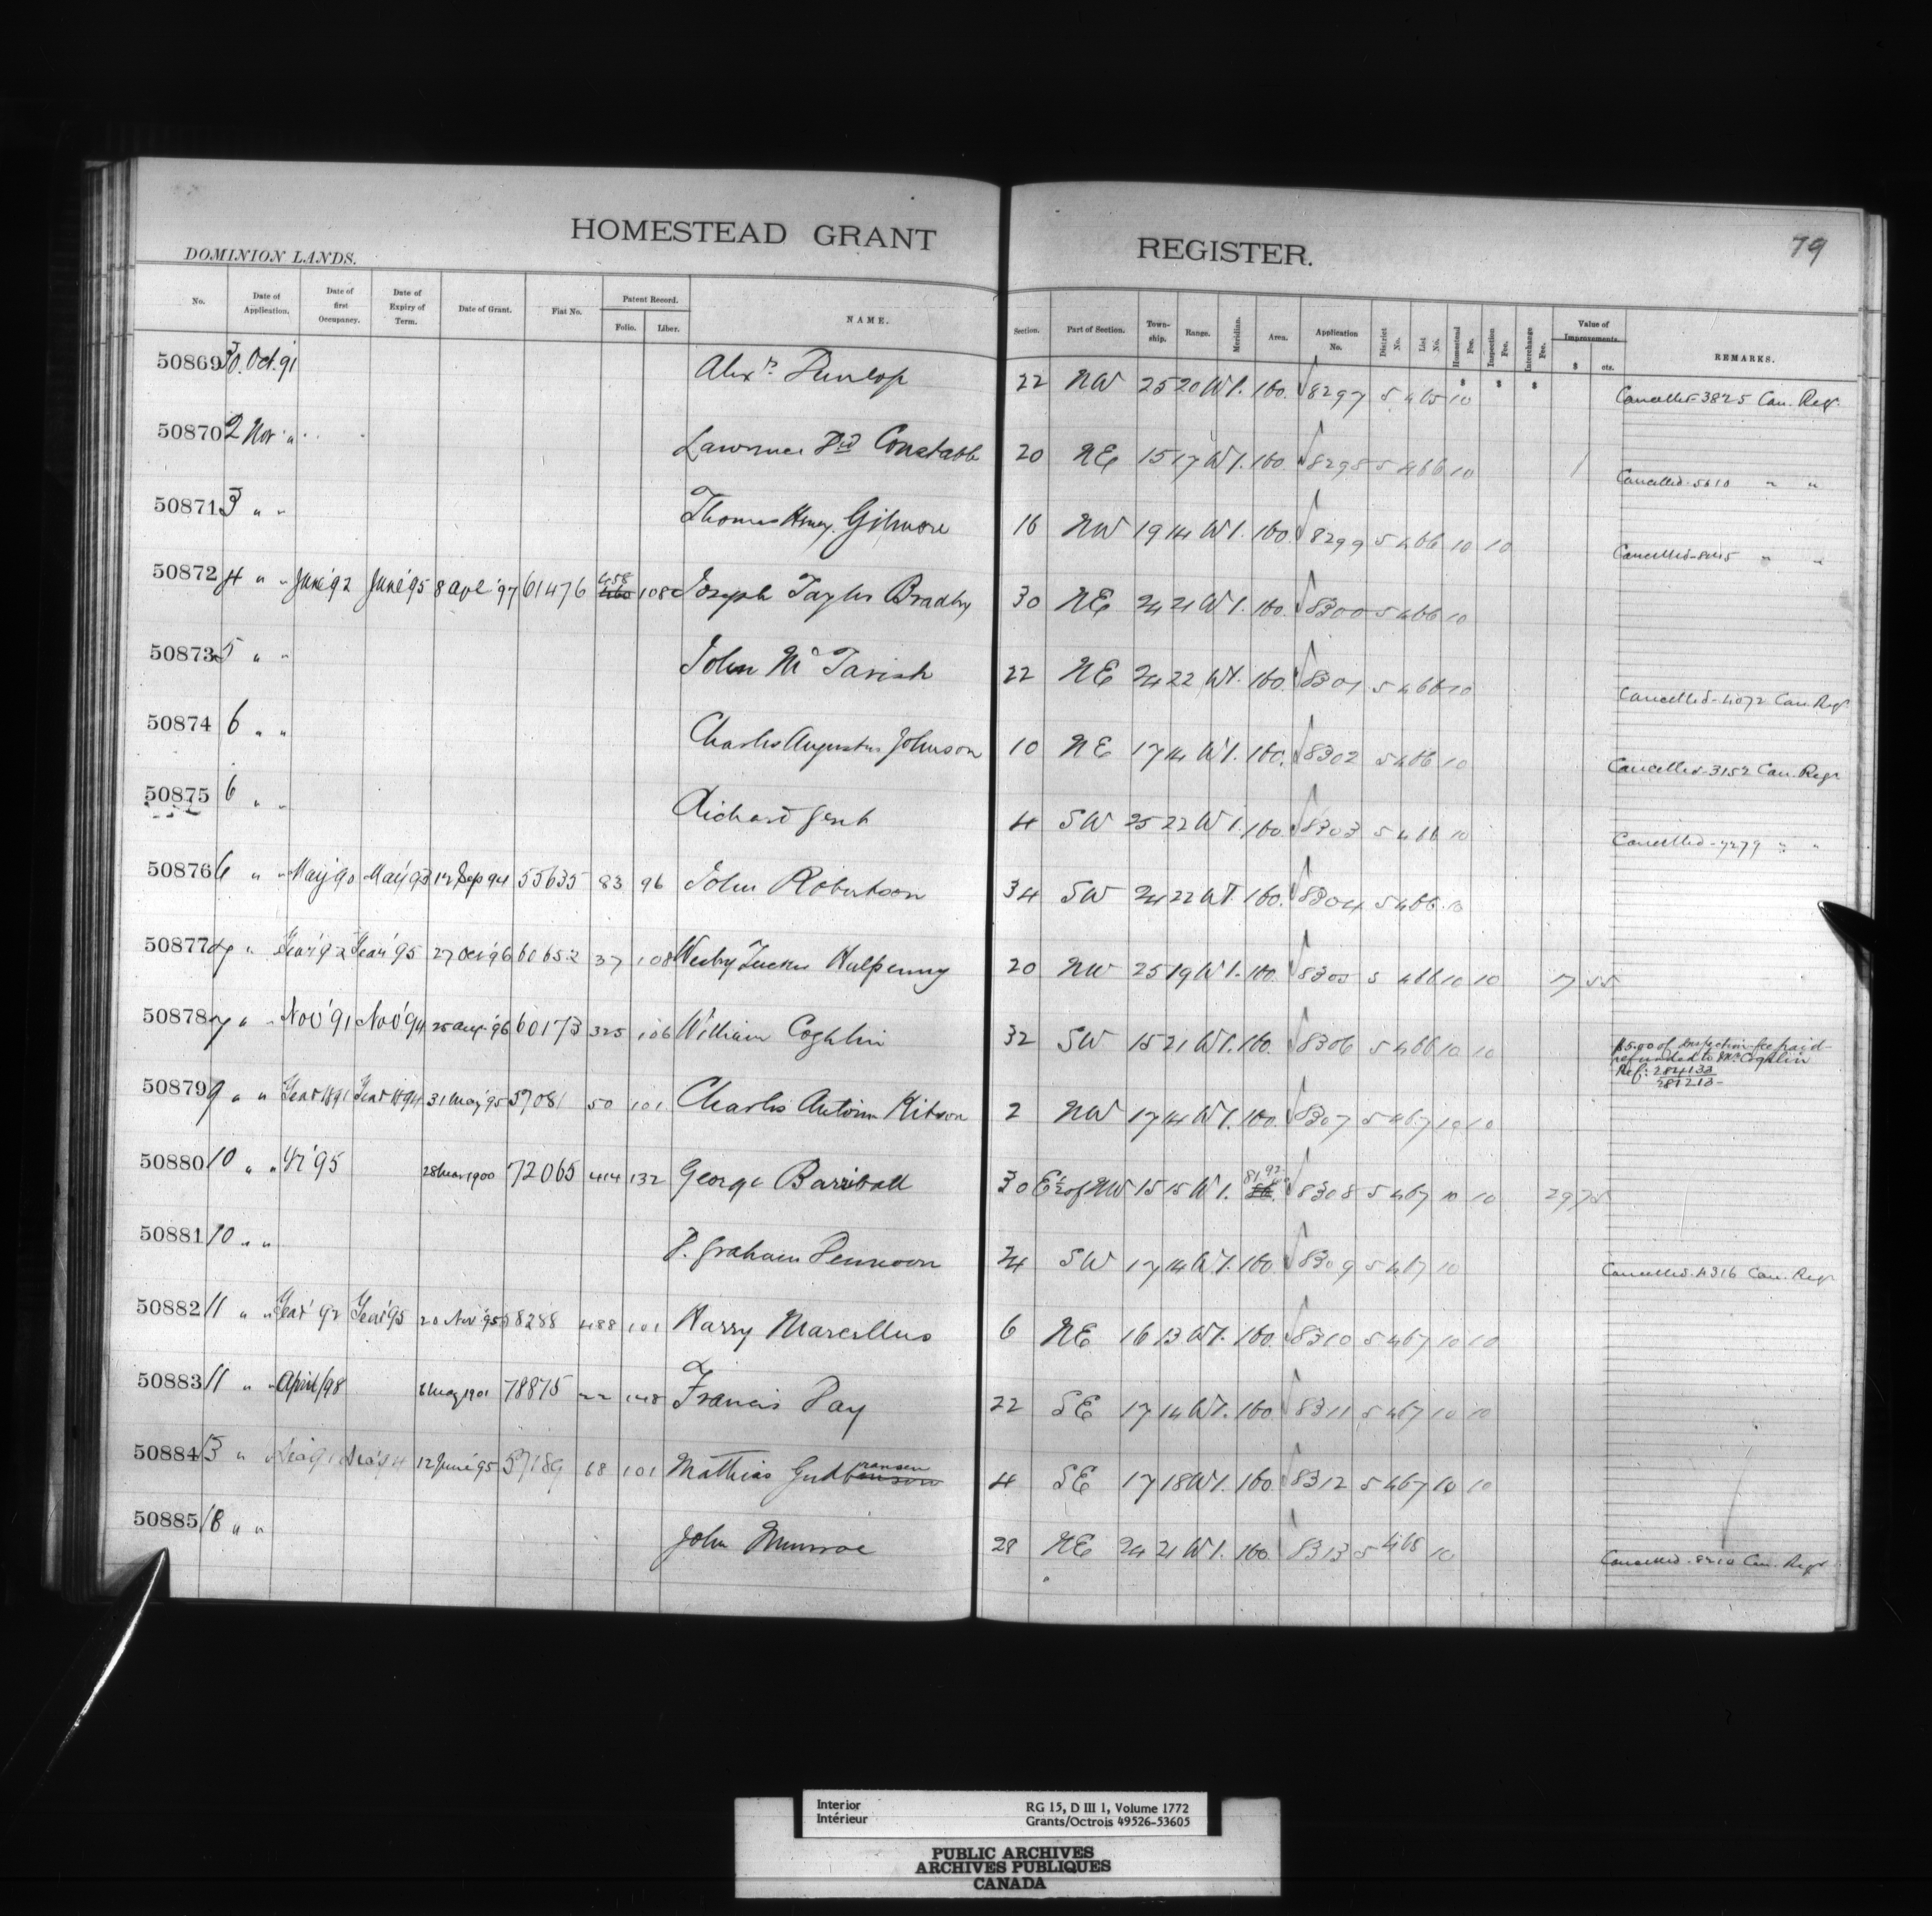 HOMESTEAD GRANT REGISTER.
79
DOMINION LANDS.
No. Date of Application. Date of first Occupancy. Date of Expiry of Term. Date of Grant. Fiat No. Patent Record. Folio. Liber. NAME. Section. Part of Section. Town-ship. Range. Meridian. Area. Application No. District No. List No. Homestead Fee. Inspection Fee. Interchange Fee. Value of Improvements. $ cts. REMARKS.
50869 30. Oct. '91 Alexr. Dunlop 22 NW 25 20 W1. 160. 8297 5 465 10 Cancelled - 3825 Can. Regr.
50870 2 Nov " Lawrence Constable 20 NE 15 17 W1. 160. 8298 5 466 10 Cancelled - 5610 " "
50871 3 " " Thomas Henry Gilmore 16 NW 19 14 W1. 160. 8299 5 466 10 10 Cancelled " "
50872 4 " " June '92 June '95 8 Apl '97 61476 458 108 Joseph Taylor Bradley 30 NE 24 21 W1. 160. 8300 5 466 10
50873 5 " " John Mc Tavish 22 NE 24 22 W1. 160. 8301 5 466 10 Cancelled - 4072 Can. Regr
50874 6 " " Charles Augustus Johnson 10 NE 17 14 W1. 160. 8302 5 466 10 Cancelled - 3152 Can. Regr
50875 6 " " Richard Gent 4 SW 25 22 W1. 160. 8303 5 466 10 Cancelled - 7279 " "
50876 6 " " May '90 May '93 12 Sep 94 55635 83 96 John Robertson 34 SW 24 22 W1. 160. 8304 5 466 10
50877 7 " Year '92 Year '95 27 Oct '96 60652 37 108 Halpenny 20 NW 25 19 W1. 160. 8305 5 466 10 10 17 55
50878 7 " " Nov '91 Nov '94 25 Aug. '96 60173 325 106 William Coghlin 32 SW 15 21 W1. 160. 8306 5 466 10 10 $5.00 of Inspection fee paid
refunded to Mr. Coghlin
Ref: 284133
281213
50879 9 " " Year 1891 Year 1894 31 May '95 57081 50 101 Charles Antoine Kitson 2 NW 17 14 W1. 160. 8307 5 467 10 10
50880 10 " " Yr '95 28 Mar 1900 72065 414 132 George Barriball 30 E½ of NW 15 15 W1. 81.92 8308 5 467 10 10 29 75
50881 10 " " P. Graham Dennoon 24 SW 17 14 W1. 160. 8309 5 467 10 Cancelled - 4316 Can. Regr
50882 11 " " Year '92 Year '95 20 Nov '95 58288 488 101 Harry Marcellus 6 NE 16 13 W1. 160. 8310 5 467 10 10
50883 11 " " April /98 6 May 1901 78875 22 148 Francis Day 22 SE 17 14 W1. 160. 8311 5 467 10 10
50884 13 " " 12 June '95 57189 68 101 Mathias Gudbransen 4 SE 17 18 W1. 160. 8312 5 467 10 10
50885 18 " " John Munroe 28 NE 24 21 W1. 160. 8313 5 468 10 Cancelled - 8210 Can. Regr
Interior
Intérieur
RG 15, D III 1, Volume 1772
Grants/Octrois 49526-53605
PUBLIC ARCHIVES
ARCHIVES PUBLIQUES
CANADA